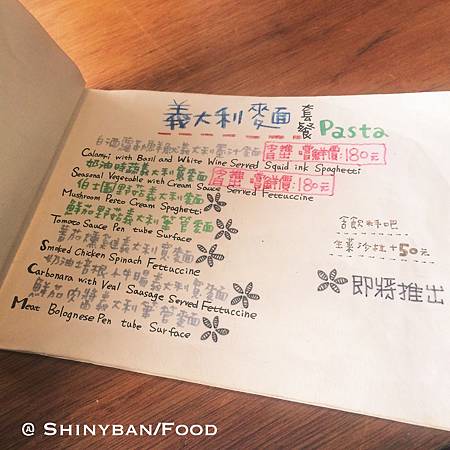 義大利麵 套餐 Pasta
白酒羅勒鮮魷義大利墨汁麵 含獎 嚐鮮價:180元
Calampi with Basil and White Wine Served Squid ink Spaghetti
奶油時蔬義大利寬麵 含獎 嚐鮮價:180元
Seasonal Vegetable with Cream Sauce Served Fettuccine
伯士圖野菇義大利麵
Mushroom Pesto Cream Spaghetti
鮮茄野菇義大利筆管麵
Tomato Sauce Pen tube Surface
燻雞義大利寬麵
Smoked Chicken Spinach Fettuccine
奶油培根小牛腸義大利寬麵
Carbonara with Veal Sausage Served Fettuccine
鮮茄肉醬義大利筆管麵
Meat Bolognese Pen tube Surface
含飲料吧
生菜沙拉+50元
即將推出
@ Shinyban/Food